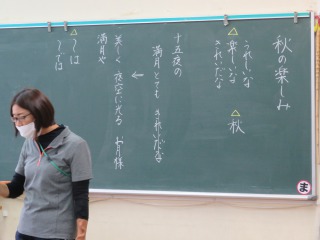 秋の楽しみ
△秋
うれしいな
楽しいな
きれいだな
十五夜の
満月とても きれいだな
←
美しく 夜空に光る お月様
満月や
△〜は
〜では
ま